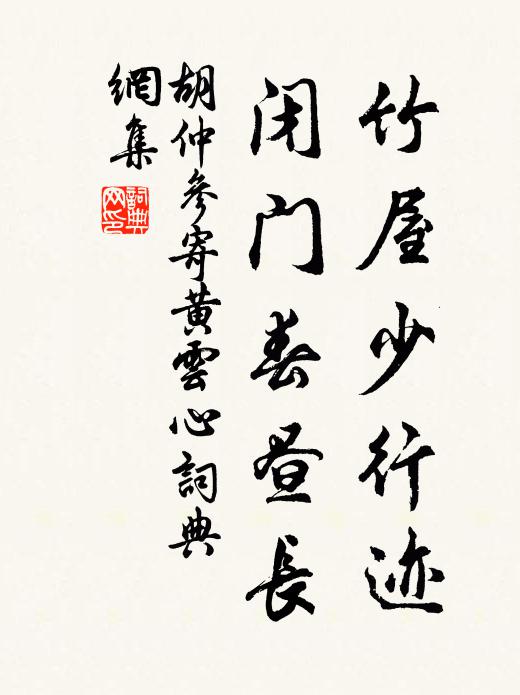 竹屋少行迹
闭门春昼長
胡仲參寄黄雲心詞典
網集
詞典网印